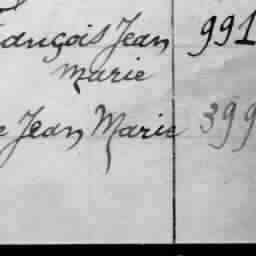 ançois Jean 991
Marie
e Jean Marie 399